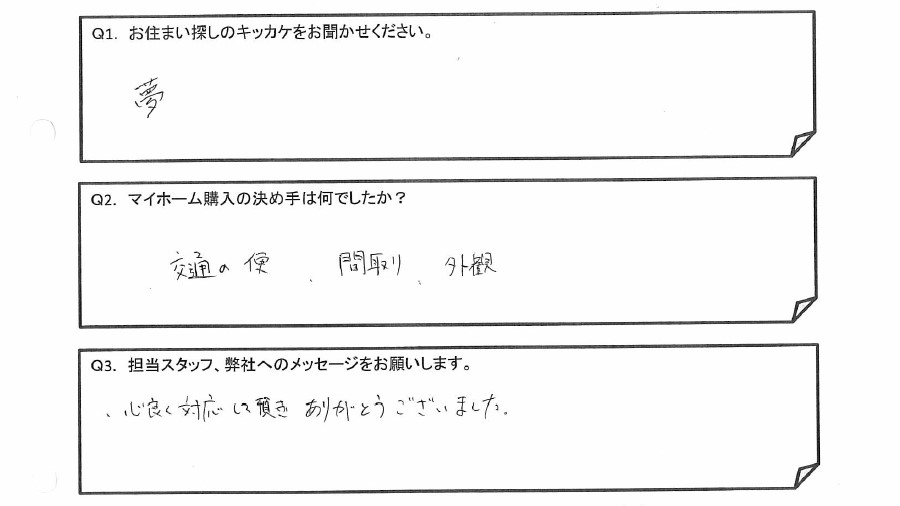 Q1. お住まい探しのキッカケをお聞かせください。
夢
Q2. マイホーム購入の決め手は何でしたか？
交通の便、間取り、外観
Q3. 担当スタッフ、弊社へのメッセージをお願いします。
、心良く対応して頂き ありがとうございました。